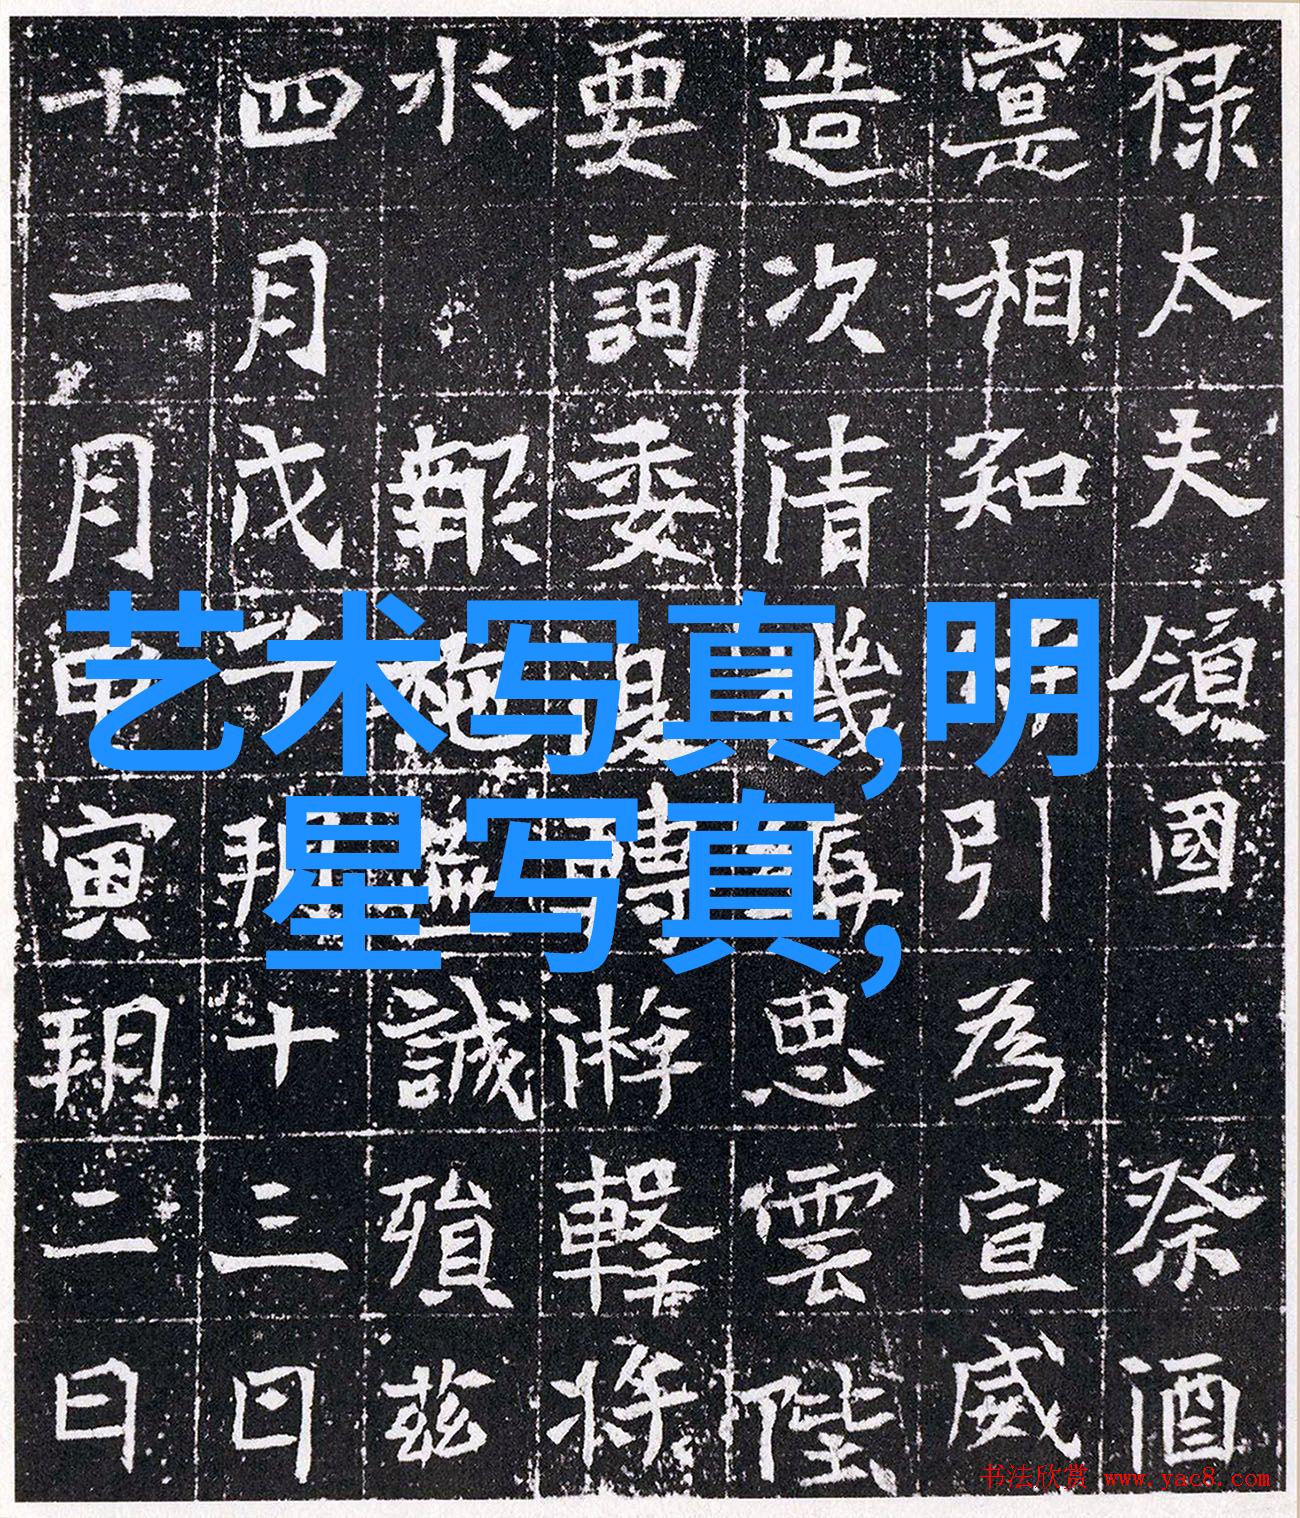 禄太夫領國祭酒
寔相知引為宣威
造次清思雲陛
要詢委轉游擊將
水報施誠殞茲
四月戊子朔十三日
十一月甲寅朔二日
艺术写真,明
星写真,
书法欣赏 www.yac8.com